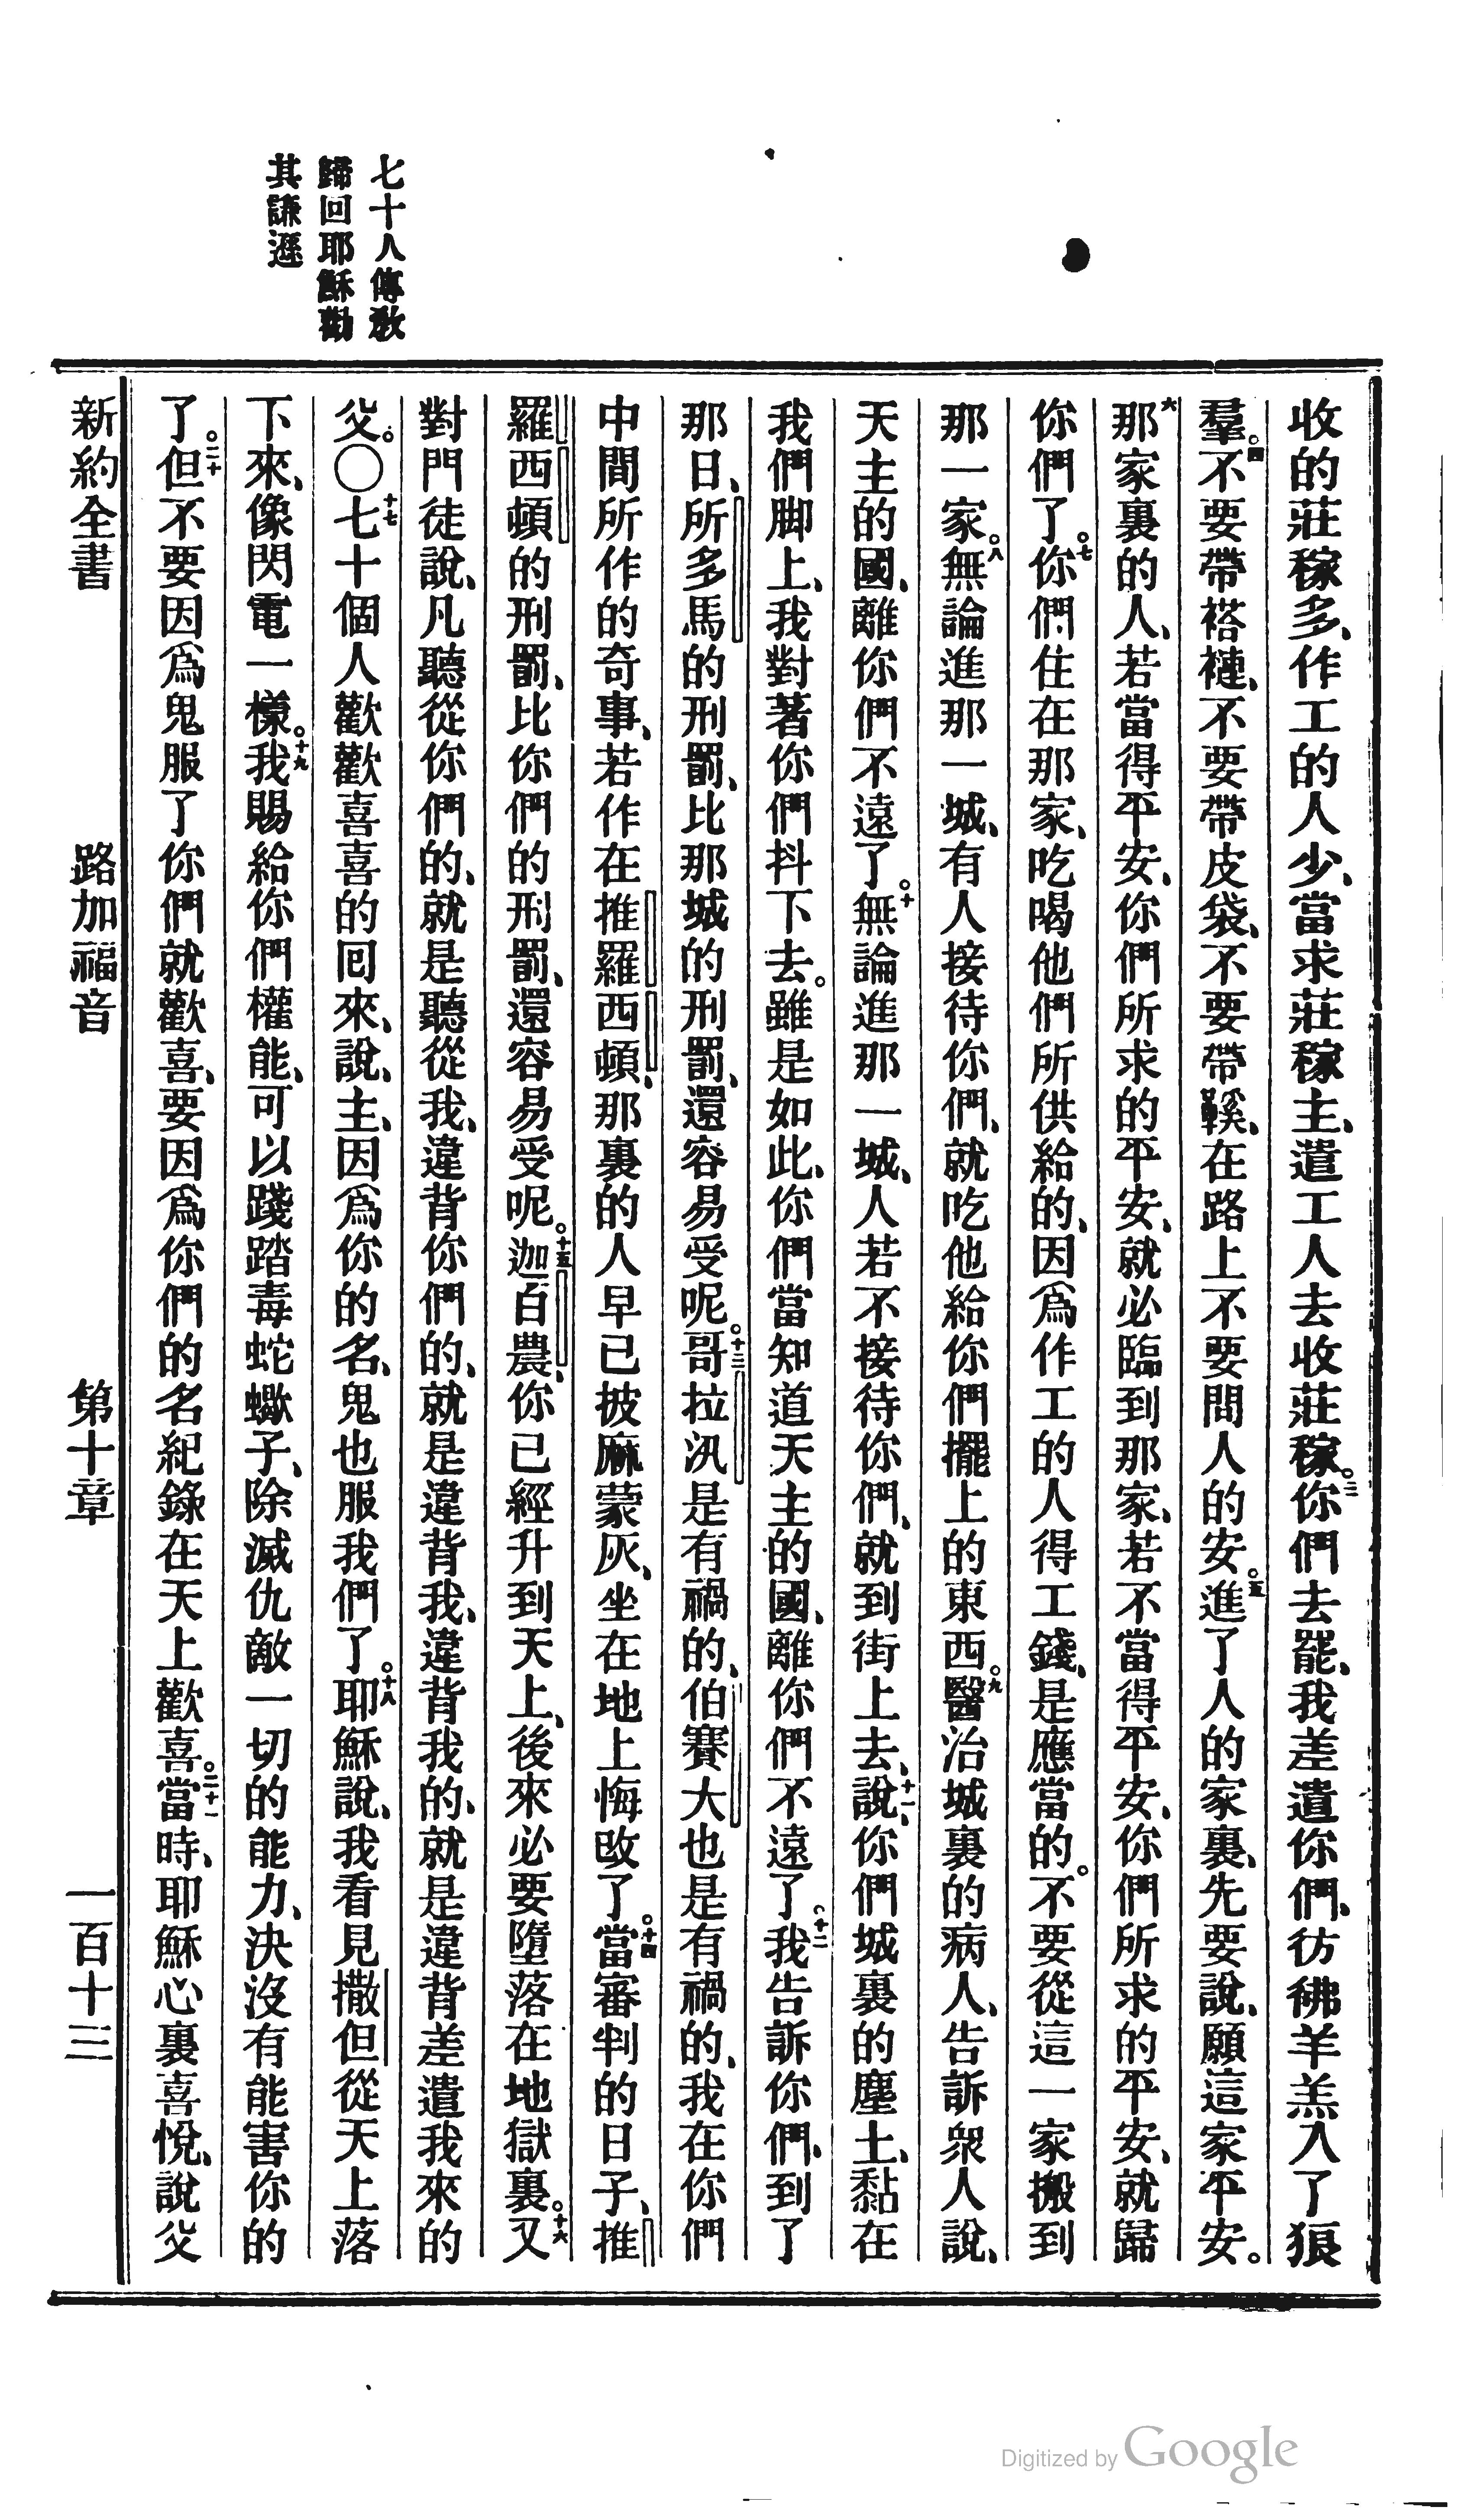 七十人傳教
歸回耶穌勸
其謙遜
收的莊稼多、作工的人少、當求莊稼主、遣工人去收莊稼。三你們去罷、我差遣你們、彷彿羊羔入了狼
羣。四不要帶褡褳、不要帶皮袋、不要帶鞵、在路上不要問人的安。五進了人的家裏、先要說、願這家平安。
六那家裏的人、若當得平安、你們所求的平安、就必臨到那家、若不當得平安、你們所求的平安、就歸
你們了。七你們住在那家、吃喝他們所供給的、因爲作工的人得工錢、是應當的。不要從這一家搬到
那一家。八無論進那一城、有人接待你們、就吃他給你們擺上的東西。九醫治城裏的病人、告訴衆人說、
天主的國、離你們不遠了。十無論進那一城、人若不接待你們、就到街上去、說、十一你們城裏的塵土、黏在
我們脚上、我對著你們抖下去。雖是如此、你們當知道天主的國、離你們不遠了。十二我告訴你們、到了
那日、所多馬的刑罰、比那城的刑罰、還容易受呢。十三哥拉汛是有禍的、伯賽大也是有禍的、我在你們
中間所作的奇事、若作在推羅西頓、那裏的人早已披麻蒙灰、坐在地上悔改了。十四當審判的日子、推
羅西頓的刑罰、比你們的刑罰、還容易受呢。十五迦百農、你已經升到天上、後來必要墮落在地獄裏。十六又
對門徒說、凡聽從你們的、就是聽從我、違背你們的、就是違背我、違背我的、就是違背差遣我來的
父。〇十七七十個人歡歡喜喜的回來、說、主、因爲你的名、鬼也服我們了。十八耶穌說、我看見撒但從天上落
下來、像閃電一樣。十九我賜給你們權能、可以踐踏毒蛇蠍子、除滅仇敵一切的能力、決沒有能害你的
了。二十但不要因爲鬼服了你們就歡喜、要因爲你們的名紀錄在天上歡喜。二十一當時、耶穌心裏喜悅、說父
新約全書 路加福音 第十章 一百十三
Digitized by Google